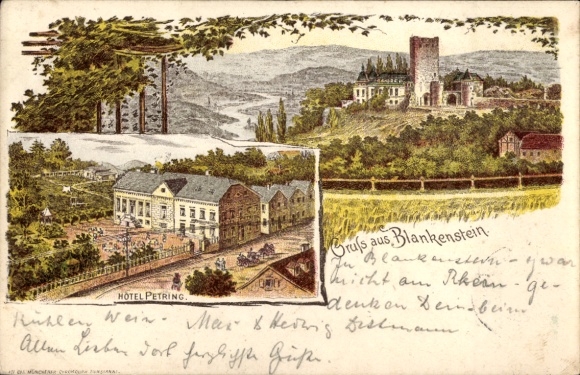 Gruss aus Blankenstein.
In Blankenstein - zwar
nicht am Rhein - ge-
denken Dein beim
HÔTEL PETRING.
Kühlen Wein - Max & Hedwig Dettmann
Allen Lieben dort herzlichste Grüße.